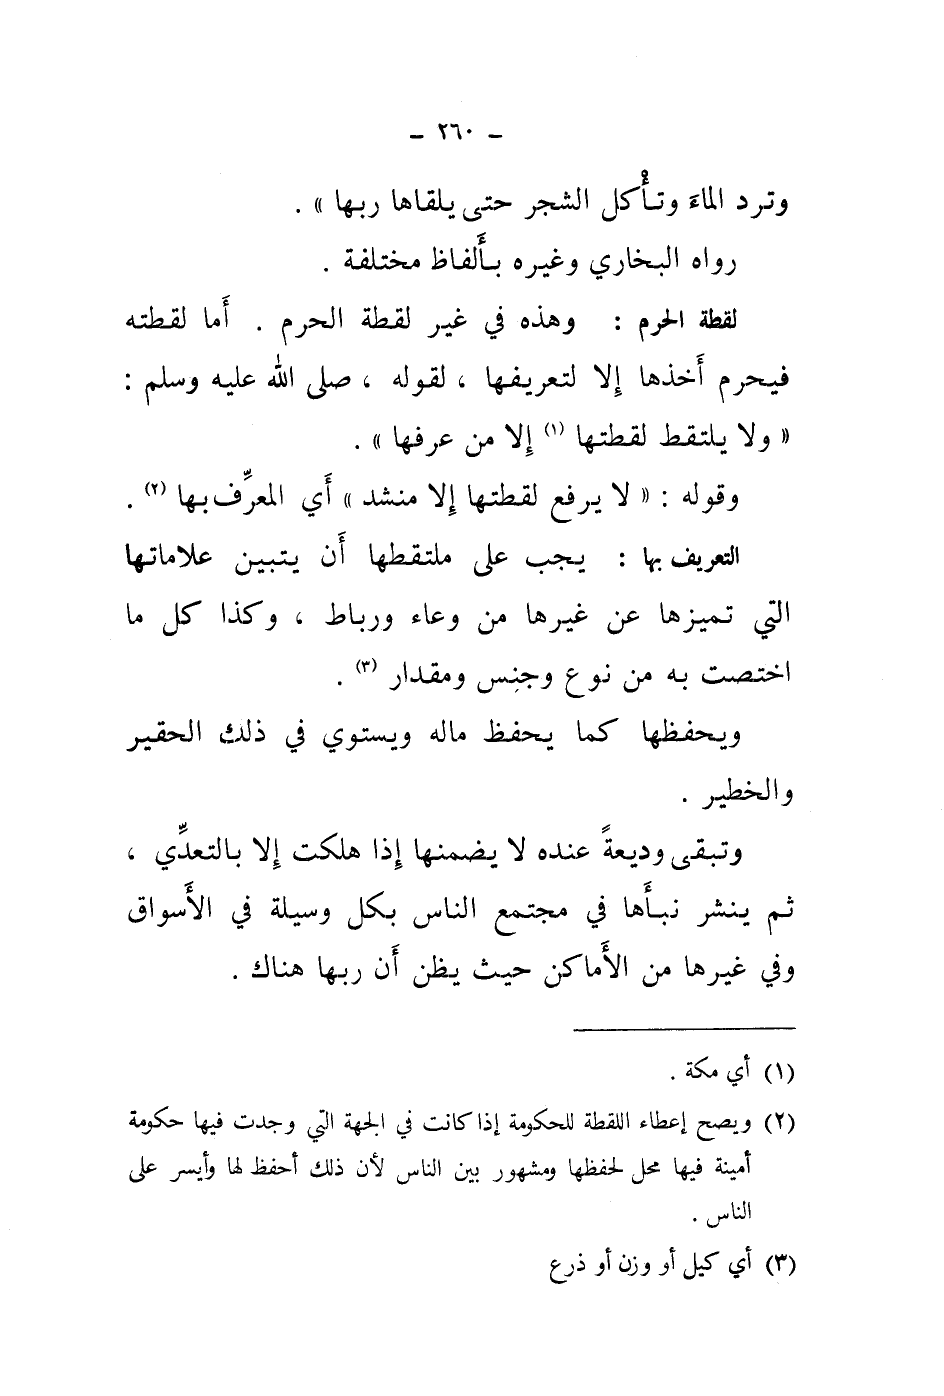 - ٢٦٠ -
وترد الماءَ وتأْكل الشجر حتى يلقاها ربها » .
رواه البخاري وغيره بأَلفاظ مختلفة .
لقطة الحرم : وهذه في غير لقطة الحرم . أَما لقطته
فيحرم أَخذها إِلا لتعريفها ، لقوله ، صلى الله عليه وسلم :
« ولا يلتقط لقطتها (١) إِلا من عرفها » .
وقوله : « لا يرفع لقطتها إِلا منشد » أَي المعرِّف بها (٢) .
التعريف بها : يجب على ملتقطها أَن يتبين علاماتها
التي تميزها عن غيرها من وعاء ورباط ، وكذا كل ما
اختصت به من نوع وجنِس ومقدار (٣) .
ويحفظها كما يحفظ ماله ويستوي في ذلك الحقير
والخطير .
وتبقى وديعةً عنده لا يضمنها إِذا هلكت إِلا بالتعدِّي ،
ثم ينشر نبأَها في مجتمع الناس بكل وسيلة في الأَسواق
وفي غيرها من الأَماكن حيث يظن أَن ربها هناك .
(١) أي مكة .
(٢) ويصح إعطاء اللقطة للحكومة إذا كانت في الجهة التي وجدت فيها حكومة
أمينة فيها محل لحفظها ومشهور بين الناس لأن ذلك أحفظ لها وأيسر على
الناس .
(٣) أي كيل أو وزن أو ذرع